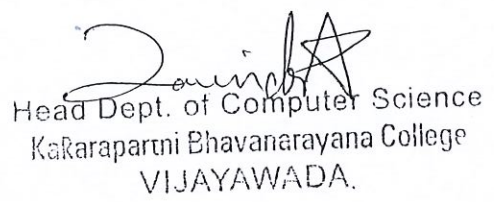 Head Dept. of Computer Science
KaKarapartni Bhavanarayana College
VIJAYAWADA.